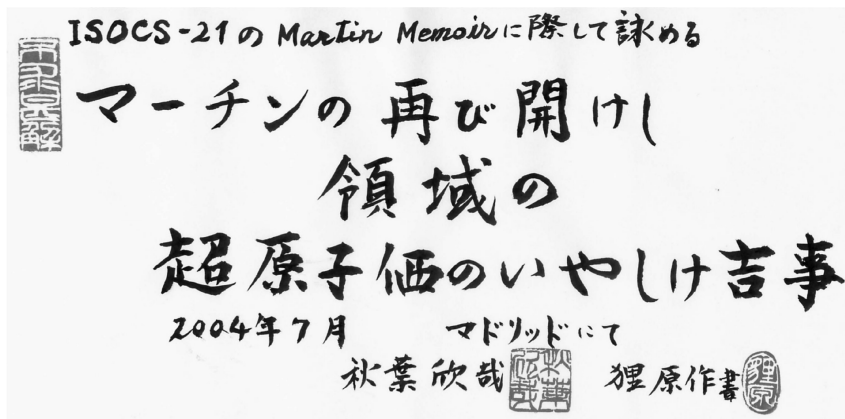 ISOCS-21のMartin Memoirに際して詠める
マーチンの再び開けし
領域の
超原子価のいやしけ吉事
2004年7月 マドリッドにて
秋葉欣哉 狸原作書